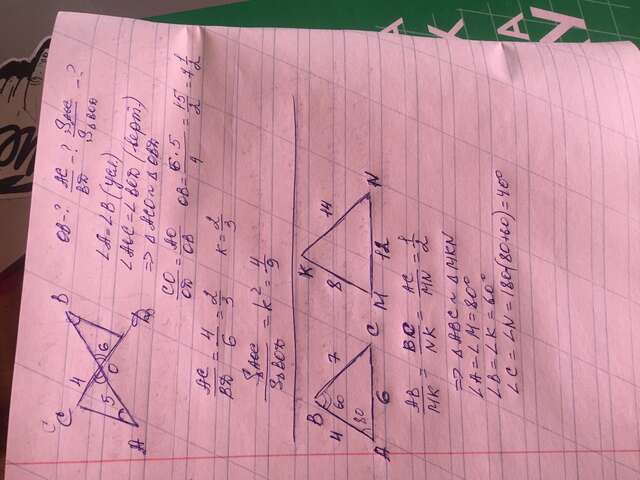 C B
4 6
5 O
A D
OB-? AC/BD-? S△AOC/S△BOD-?
∠A=∠B (усл.)
∠AOC=∠BOD (верт.)
⇒ △ACO∾△OBD
CO/OD = AO/OB OB = 6·5/4 = 15/2 = 7 1/2
AC/BD = 4/6 = 2/3 k = 2/3
S△AOC/S△BOD = k² = 4/9
B K
4 60 7 8 14
80
A 6 C M 12 N
AB/MK = BC/NK = AC/MN = 1/2
⇒ △ABC∾△MKN
∠A=∠M=80°
∠B=∠K=60°
∠C=∠N=180-(80+60)=40°